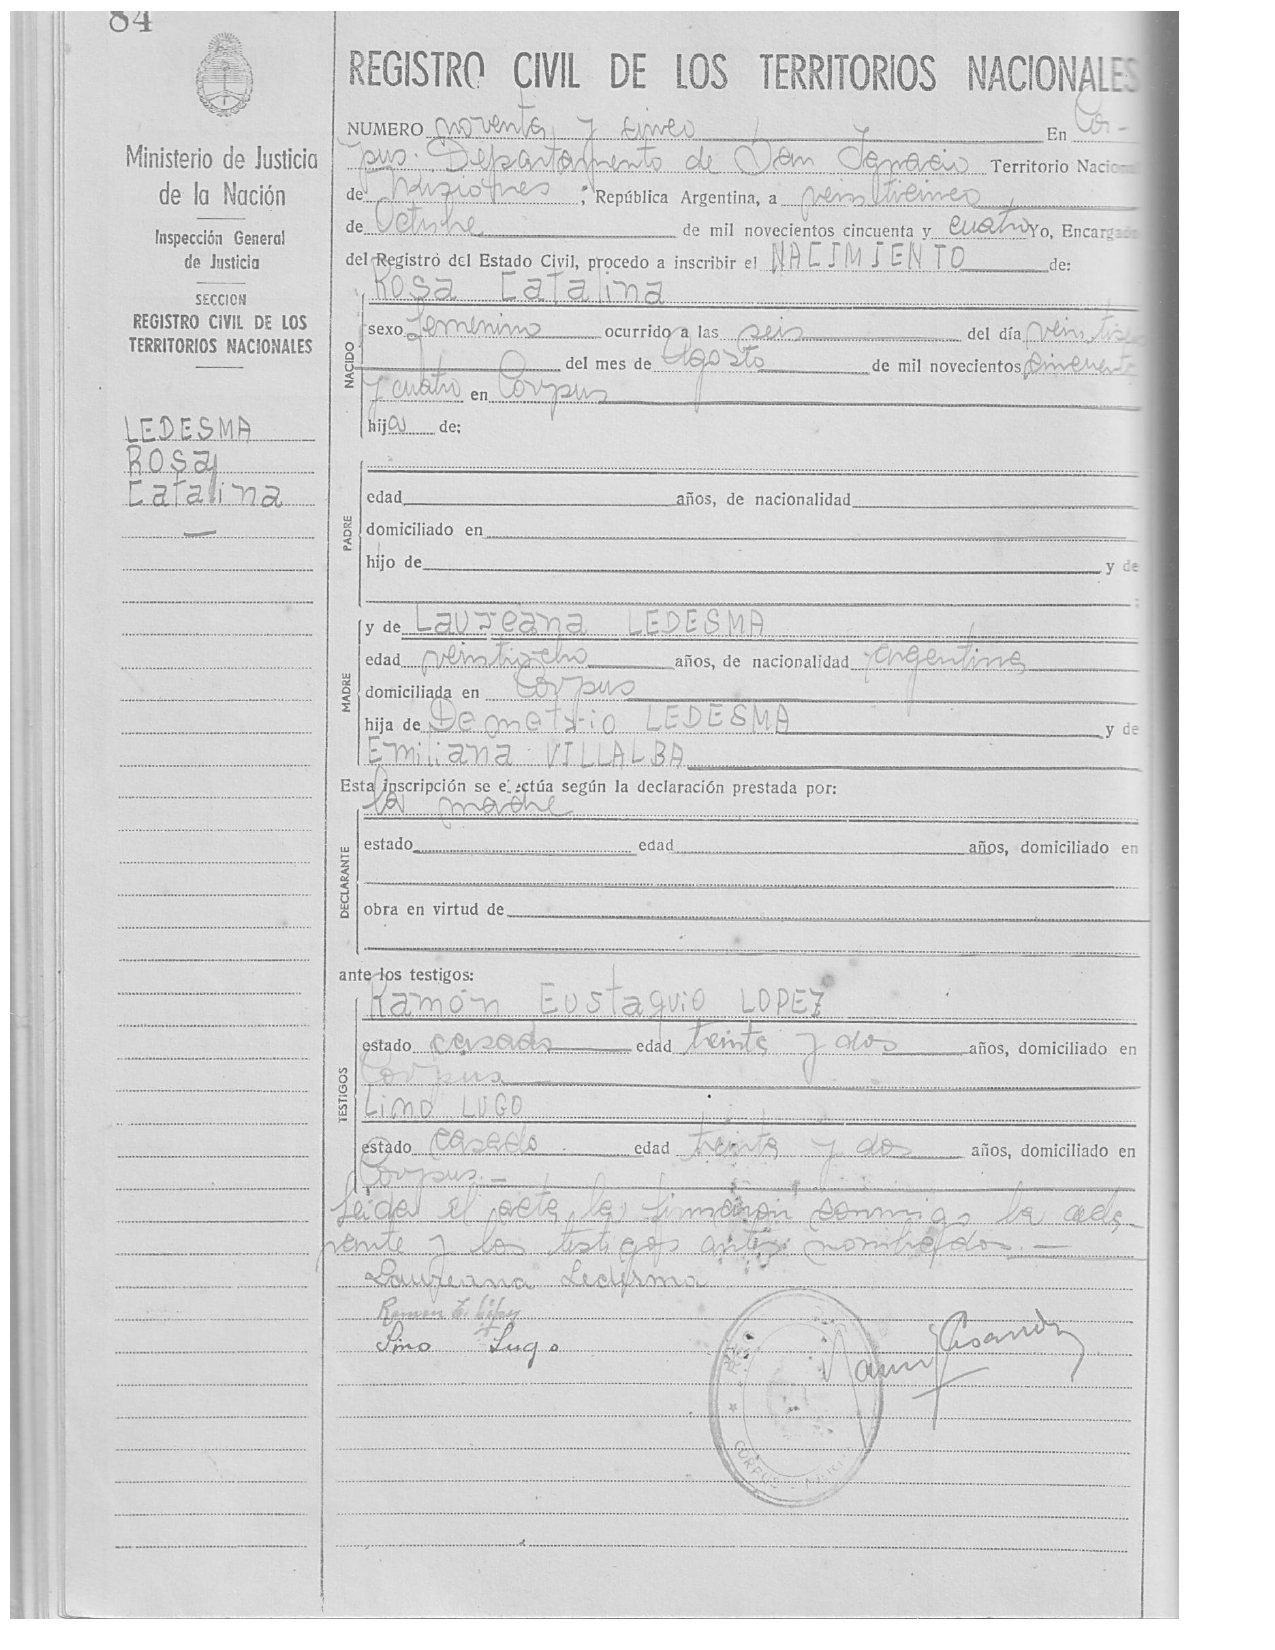 84
REGISTRO CIVIL DE LOS TERRITORIOS NACIONALES
Ministerio de Justicia
de la Nación
Inspección General
de Justicia
SECCION
REGISTRO CIVIL DE LOS
TERRITORIOS NACIONALES
LEDESMA
ROSA
Catalina
NUMERO noventa y cinco En Cor-
pus. Departamento de San Ignacio Territorio Nacional
de Misiones ; República Argentina, a veinticinco
de Octubre de mil novecientos cincuenta y cuatro Yo, Encargado
del Registro del Estado Civil, procedo a inscribir el NACIMIENTO de:
NACIDO
Rosa Catalina
sexo femenino ocurrido a las seis del día
del mes de Agosto de mil novecientos cincuenta
y cuatro en Corpus
hija de:
PADRE
edad años, de nacionalidad
domiciliado en
hijo de y de
MADRE
y de Laureana LEDESMA
edad veintiocho años, de nacionalidad argentina
domiciliada en Corpus
hija de Demetrio LEDESMA y de
Emiliana VILLALBA
Esta inscripción se efectúa según la declaración prestada por:
DECLARANTE
la madre
estado edad años, domiciliado en
obra en virtud de
ante los testigos:
TESTIGOS
Ramón Eustaquio LOPEZ
estado casado edad treinta y dos años, domiciliado en
Corpus
Lino LUGO
estado casado edad treinta y dos años, domiciliado en
Corpus.—
Leida el acta, la firmaron conmigo la
y los testigos antes nombrados.—
Laureana Ledesma
Ramon E. López
Lino Lugo
CORPUS